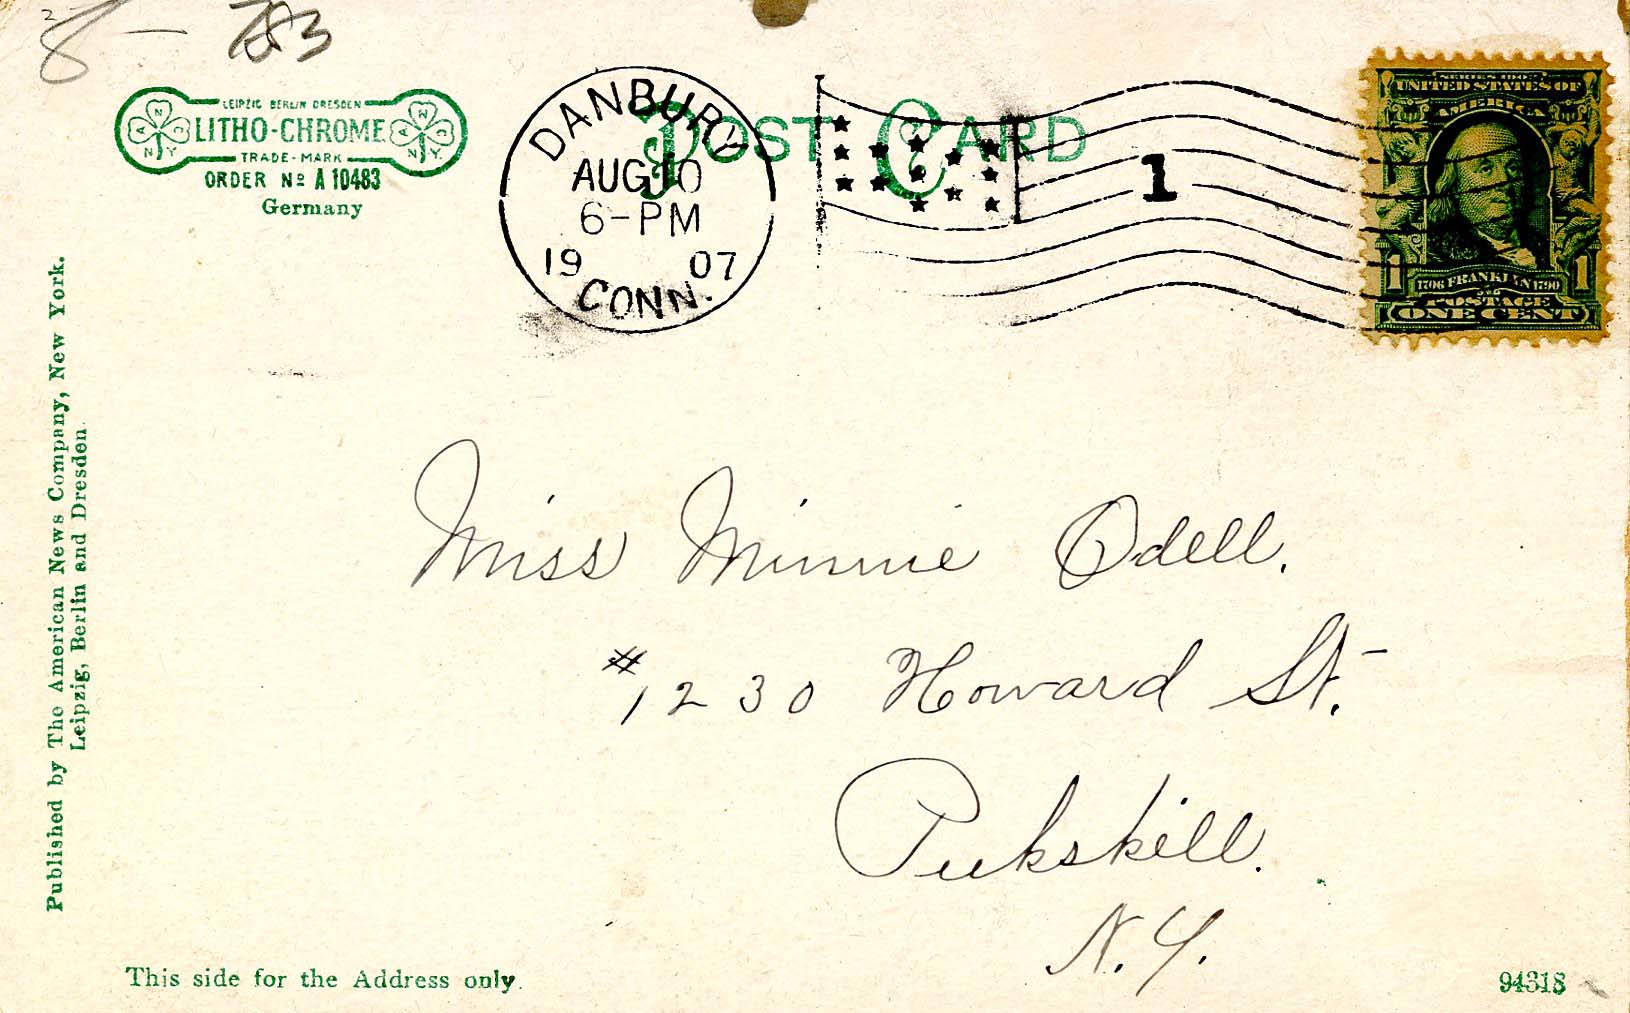 8 - 783
LEIPZIG BERLIN DRESDEN
LITHO-CHROME
TRADE-MARK
ORDER Nº A 10483
Germany
POST CARD
DANBURY
AUG 10
6-PM
19 07
CONN.
1
SERIES 1902
UNITED STATES OF
AMERICA
1706 FRANKLIN 1790
1 1
POSTAGE
ONE CENT
Published by The American News Company, New York.
Leipzig, Berlin and Dresden.
Miss Minnie Odell.
#1230 Howard St.
Peekskill.
N.Y.
This side for the Address only.
94318